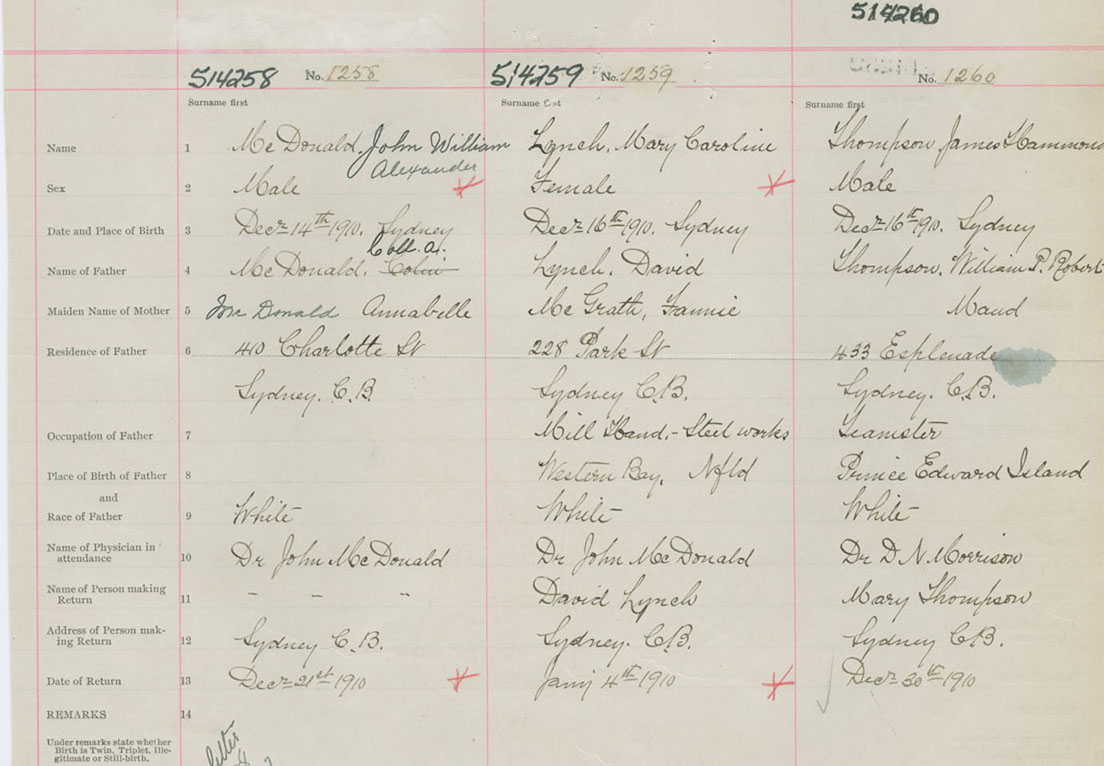 514260
514258 No. 1258 514259 No. 1259 No. 1260
Surname first Surname first Surname first
Name 1 McDonald, John William Lynch, Mary Caroline Thompson, James Hammond
Alexander
Sex 2 Male Female Male
Date and Place of Birth 3 Decr 14th 1910. Sydney Decr 16th 1910. Sydney Decr 16th 1910. Sydney
Coll. A.
Name of Father 4 McDonald, Colin Lynch, David Thompson, William P. Robert
Maiden Name of Mother 5 McDonald Annabelle McGrath, Fannie Maud
Residence of Father 6 410 Charlotte St 228 Park St 433 Esplenade
Sydney. C.B. Sydney C.B. Sydney. C.B.
Occupation of Father 7 Mill Hand. - Steel works Teamster
Place of Birth of Father 8 Western Bay, Nfld Prince Edward Island
and
Race of Father 9 White White White
Name of Physician in
attendance 10 Dr John McDonald Dr John McDonald Dr D N Morrison
Name of Person making
Return 11 " " " David Lynch Mary Thompson
Address of Person mak-
ing Return 12 Sydney C.B. Sydney. C.B. Sydney C.B.
Date of Return 13 Decr 21st 1910 Jany 4th 1910 Decr 30th 1910
REMARKS 14
Under remarks state whether
Birth is Twin, Triplet, Ille-
gitimate or Still-birth.